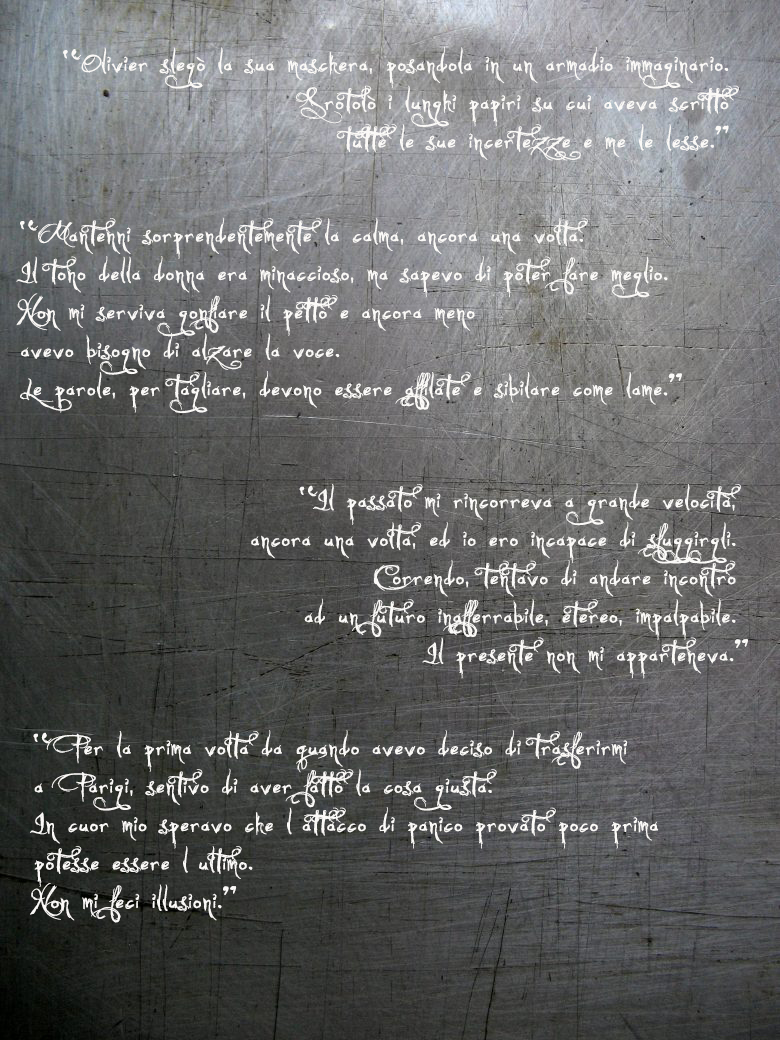 “Olivier slegò la sua maschera, posandola in un armadio immaginario.
Srotolò i lunghi papiri su cui aveva scritto
tutte le sue incertezze e me le lesse.”
“Mantenni sorprendentemente la calma, ancora una volta.
Il tono della donna era minaccioso, ma sapevo di poter fare meglio.
Non mi serviva gonfiare il petto e ancora meno
avevo bisogno di alzare la voce.
Le parole, per tagliare, devono essere affilate e sibilare come lame.”
“Il passato mi rincorreva a grande velocità,
ancora una volta, ed io ero incapace di sfuggirgli.
Correndo, tentavo di andare incontro
ad un futuro inafferrabile, etereo, impalpabile.
Il presente non mi apparteneva.”
“Per la prima volta da quando avevo deciso di trasferirmi
a Parigi, sentivo di aver fatto la cosa giusta.
In cuor mio speravo che l attacco di panico provato poco prima
potesse essere l ultimo.
Non mi feci illusioni.”